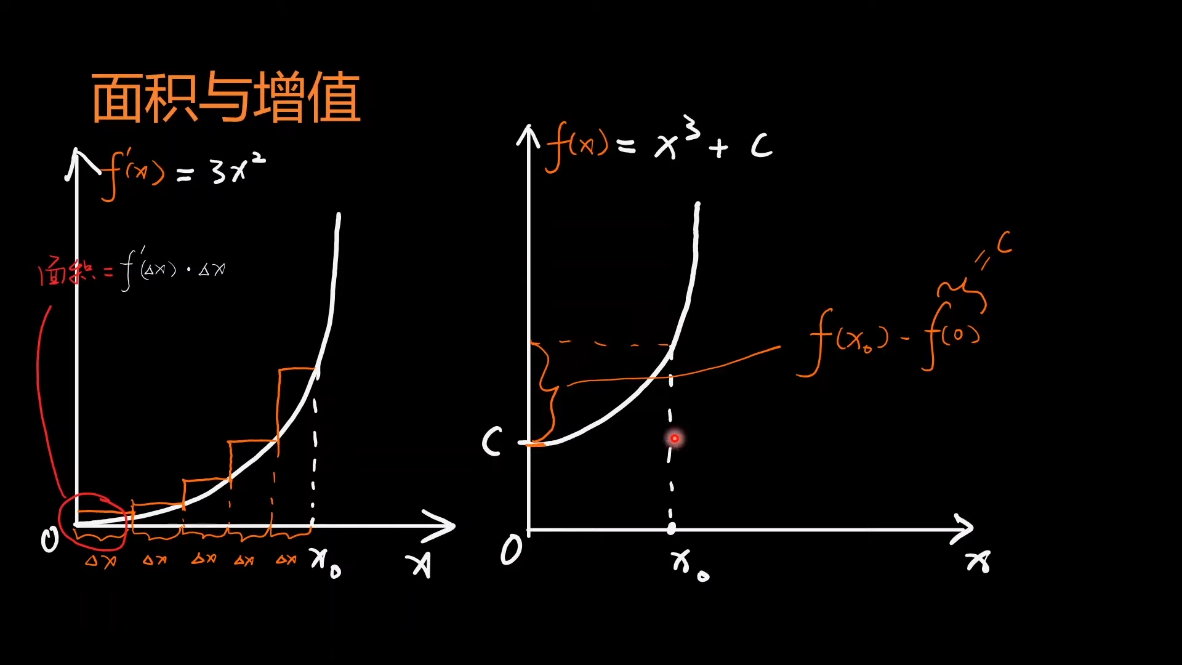 面积与增值
f'(x) = 3x²
面积 = f'(Δx)·Δx
0
Δx Δx Δx Δx Δx
x₀
x
f(x) = x³ + C
C
0
x₀
x
f(x₀) - f(0)
= C